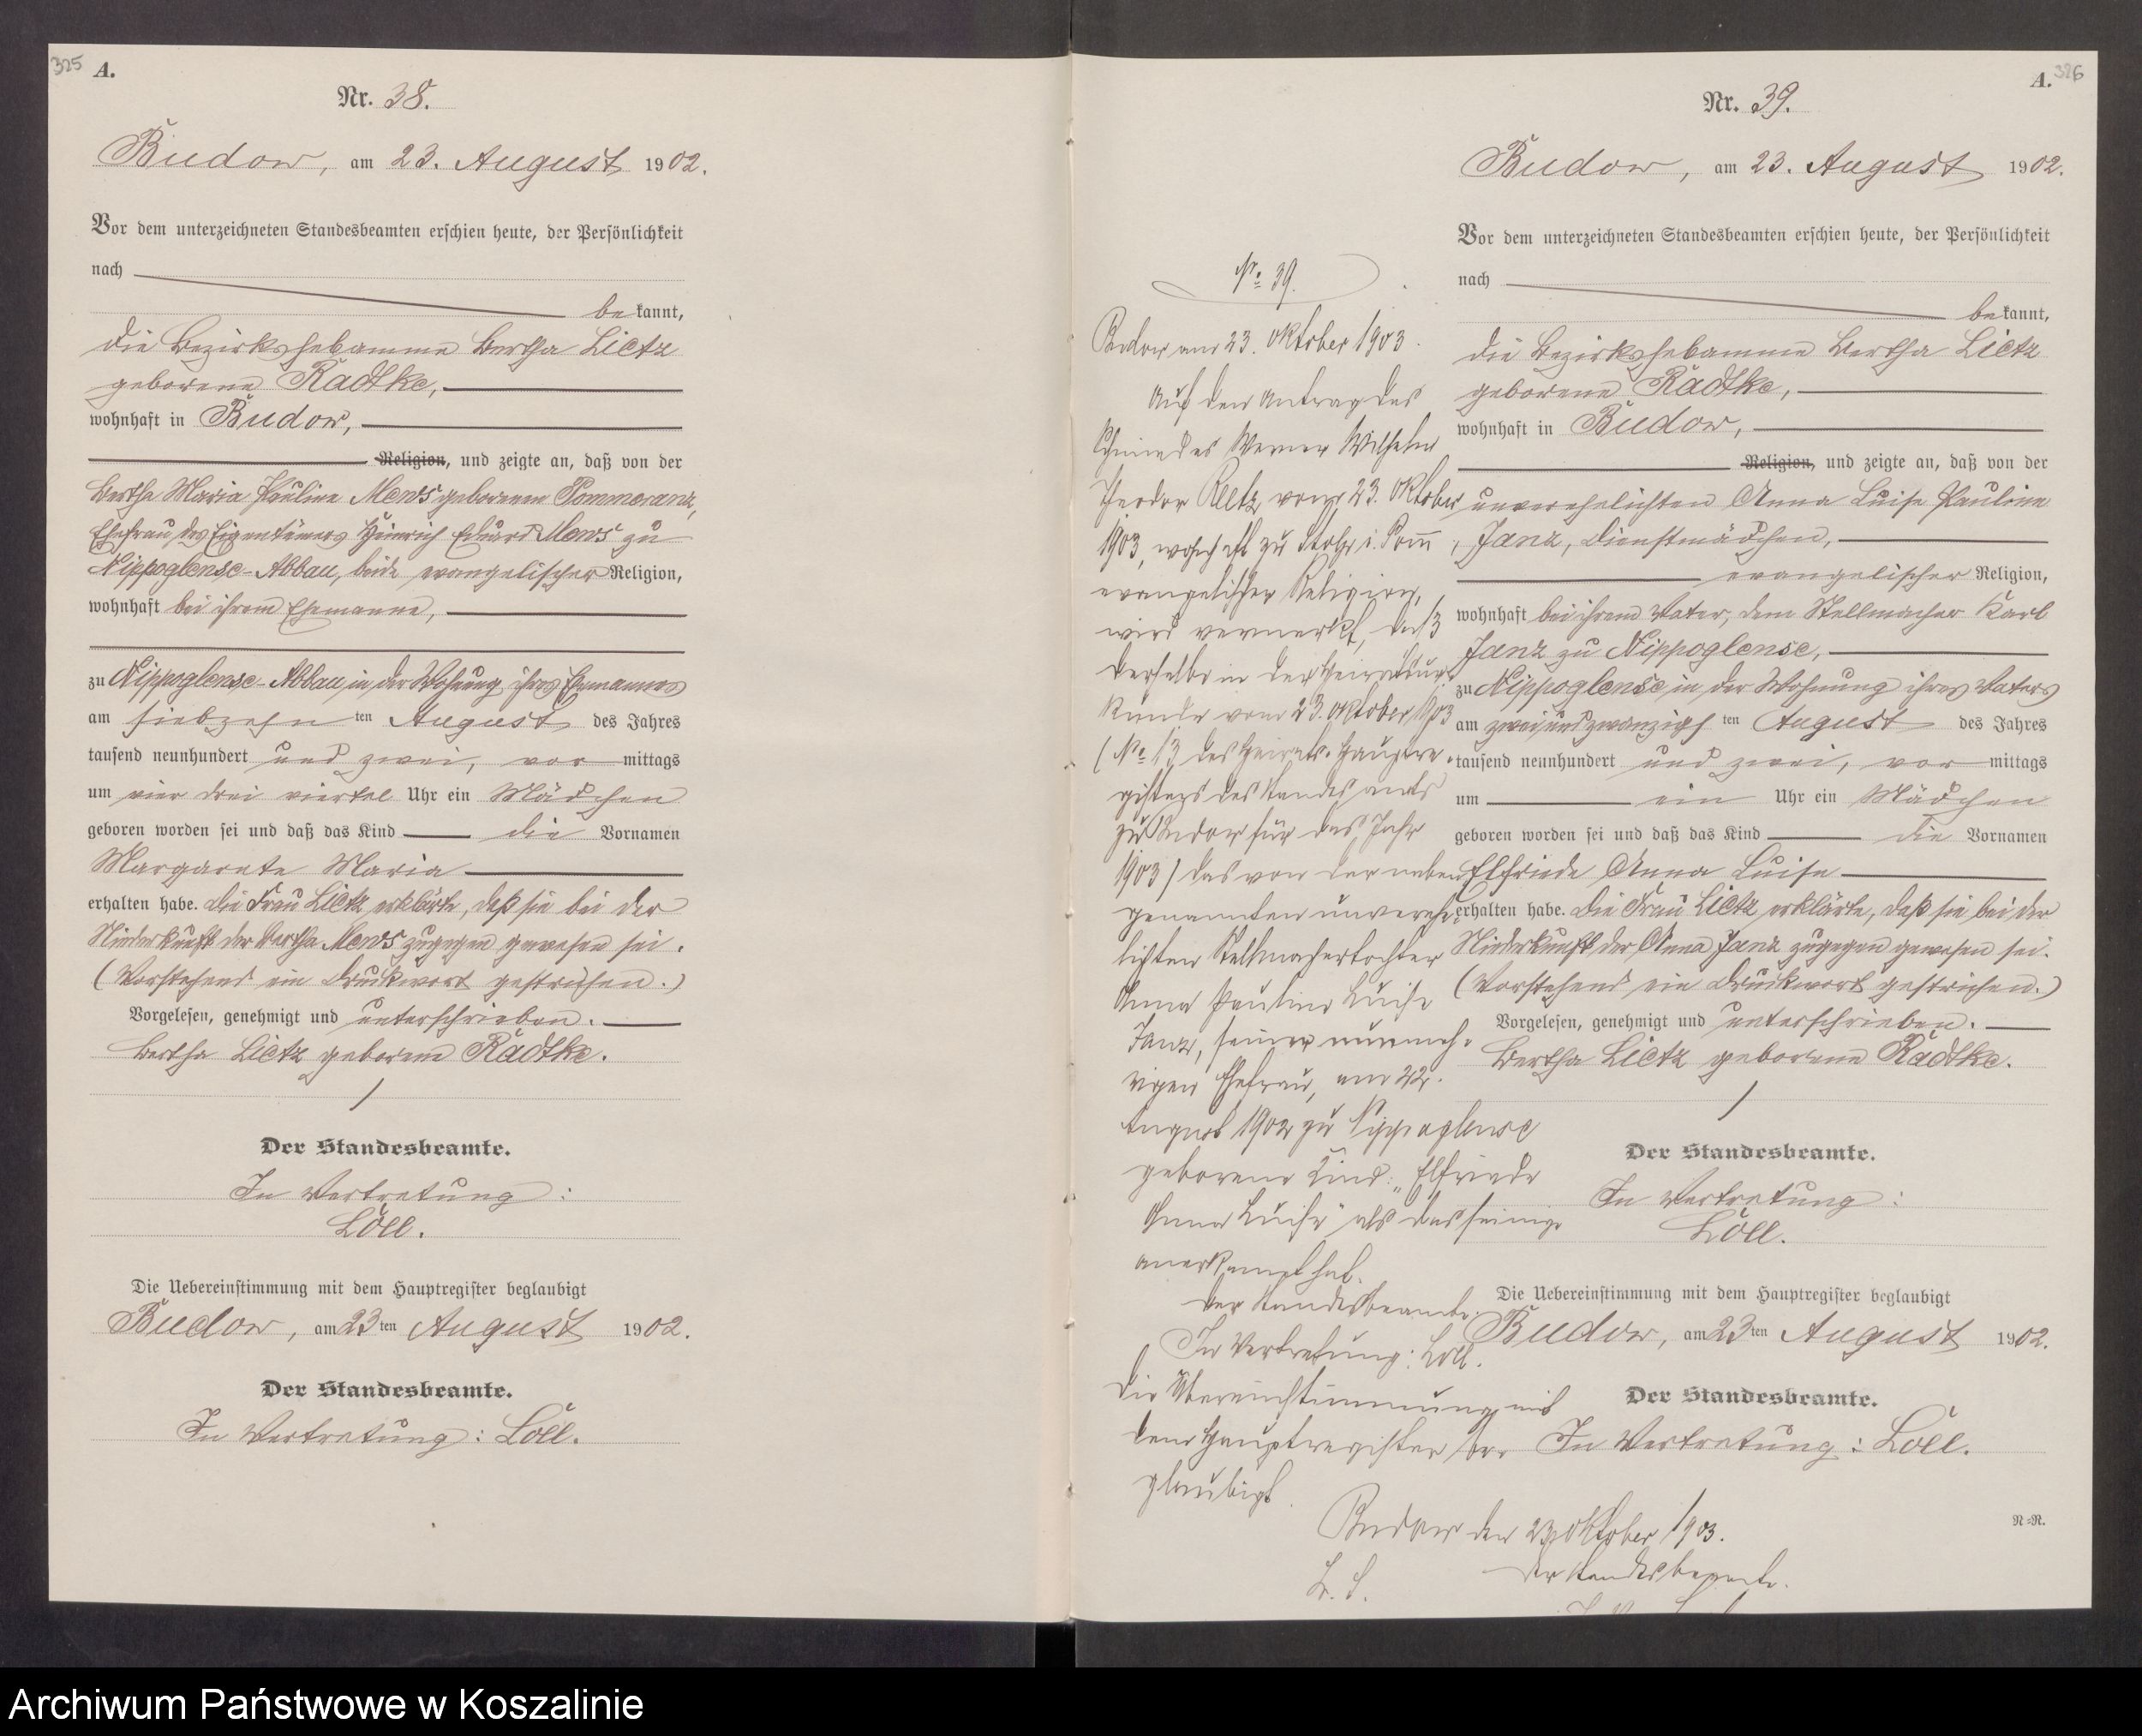 325
A.
Nr. 38.
Budow, am 23. August 1902.
Vor dem unterzeichneten Standesbeamten erschien heute, der Persönlichkeit
nach
be kannt,
die Bezirkshebamme Bertha Lietz
geborene Radtke,
wohnhaft in Budow,
Religion, und zeigte an, daß von der
Bertha Maria Pauline Mews geborenen Pommeranz,
Ehefrau des Eigentümers Heinrich Eduard Mews zu
Nippoglense-Abbau, beide evangelischer Religion,
wohnhaft bei ihrem Ehemanne,
zu Nippoglense-Abbau, in der Wohnung ihres Ehemannes
am siebzehn ten August des Jahres
tausend neunhundert und zwei, vor mittags
um vier drei viertel Uhr ein Mädchen
geboren worden sei und daß das Kind die Vornamen
Margarete Maria
erhalten habe. Die Frau Lietz erklärte, daß sie bei der
Niederkunft der Bertha Mews zugegen gewesen sei.
(Vorstehend ein Druckwort gestrichen.)
Vorgelesen, genehmigt und unterschrieben.
Bertha Lietz geborene Radtke.
Der Standesbeamte.
In Vertretung:
Löll.
Die Uebereinstimmung mit dem Hauptregister beglaubigt
Budow, am 23ten August 1902.
Der Standesbeamte.
In Vertretung: Löll.
No 39.
Budow am 23. Oktober 1903.
Auf den Antrag des
Schmiedes Werner Wilhelm
Theodor Reetz vom 23. Oktober
1903, wohnhaft zu Stolp i. Pomm,
evangelischer Religion,
wird vermerkt, daß
derselbe in der Heiratsur-
kunde vom 23. Oktober 1903
(No 13 des Heirats-Hauptre-
gisters des Standesamts
zu Budow für das Jahr
1903) das von der neben
genannten unverehe-
lichten Stellmachertochter
Anna Pauline Luise
Janz, seiner nunmeh-
rigen Ehefrau, am 22.
August 1902 zu Nippoglense
geborene Kind: „Elfriede
Anna Luise" als das seinige
anerkannt hat.
Der Standesbeamte.
In Vertretung: Löll.
Die Übereinstimmung mit
dem Hauptregister be-
glaubigt.
Budow den 23. Oktober 1903.
L. S. Der Standesbeamte.
A. 326
Nr. 39.
Budow, am 23. August 1902.
Vor dem unterzeichneten Standesbeamten erschien heute, der Persönlichkeit
nach
be kannt,
die Bezirkshebamme Bertha Lietz
geborene Radtke,
wohnhaft in Budow,
Religion, und zeigte an, daß von der
unverehelichten Anna Luise Pauline
Janz, Dienstmädchen,
evangelischer Religion,
wohnhaft bei ihrem Vater, dem Stellmacher Karl
Janz zu Nippoglense,
zu Nippoglense, in der Wohnung ihres Vaters
am zweiundzwanzigs ten August des Jahres
tausend neunhundert und zwei, vor mittags
um ein Uhr ein Mädchen
geboren worden sei und daß das Kind die Vornamen
Elfriede Anna Luise
erhalten habe. Die Frau Lietz erklärte, daß sie bei der
Niederkunft der Anna Janz zugegen gewesen sei.
(Vorstehend ein Druckwort gestrichen.)
Vorgelesen, genehmigt und unterschrieben.
Bertha Lietz geborene Radtke.
Der Standesbeamte.
In Vertretung:
Löll.
Die Uebereinstimmung mit dem Hauptregister beglaubigt
Budow, am 23ten August 1902.
Der Standesbeamte.
In Vertretung: Löll.
N=N.
Archiwum Państwowe w Koszalinie